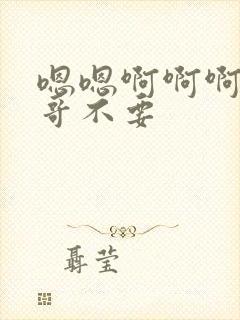 嗯嗯啊啊啊
哥不要
聂莹